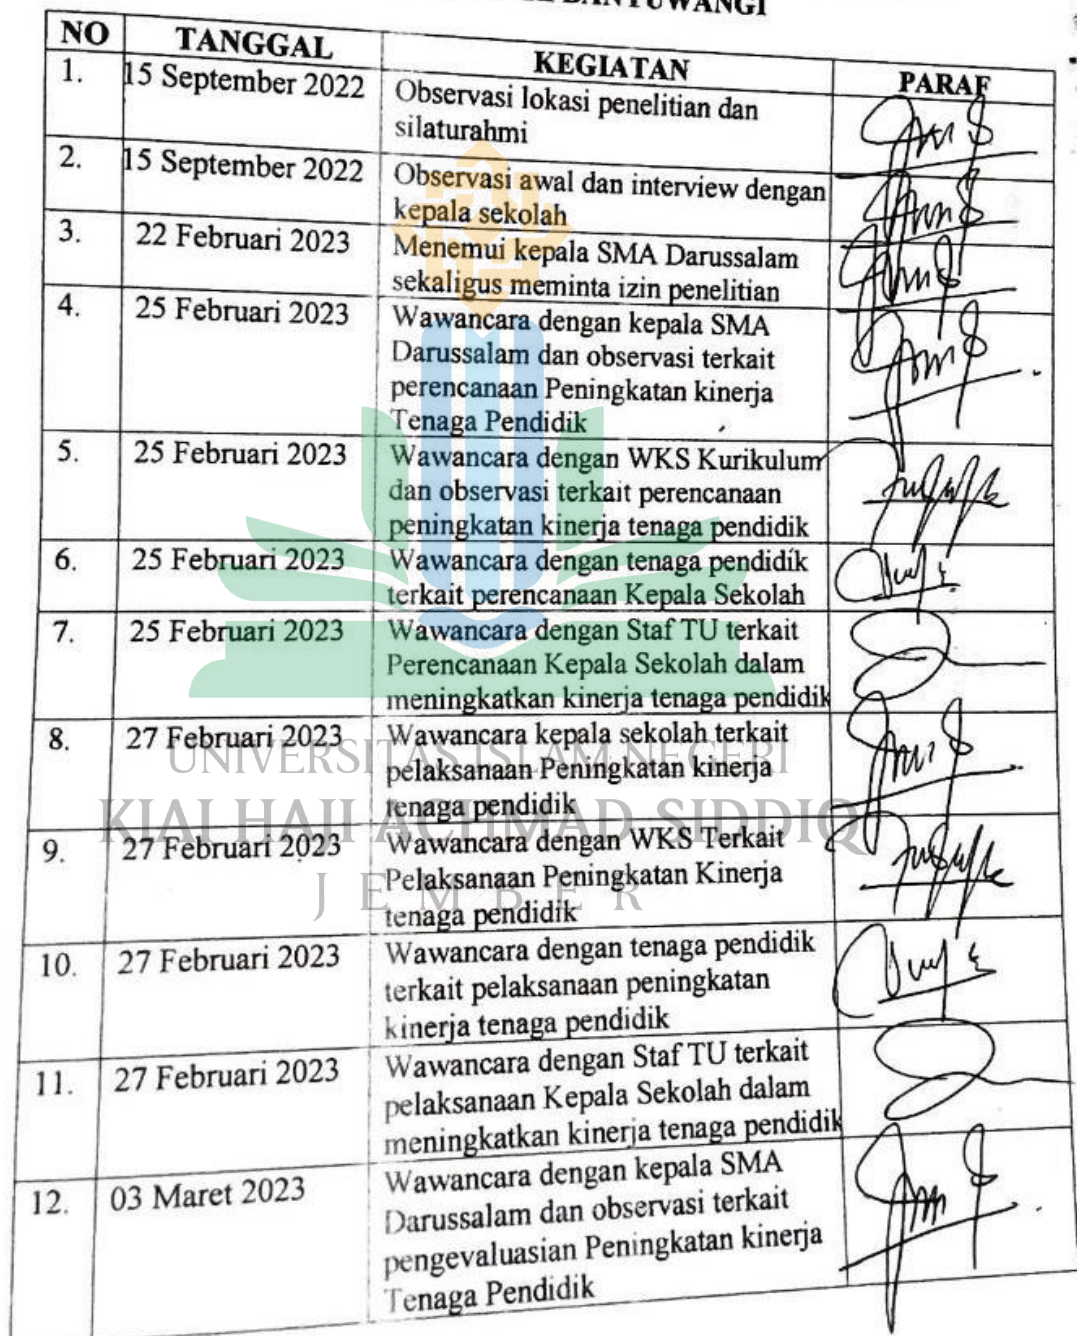 BANYUWANGI
NO TANGGAL KEGIATAN PARAF
1. 15 September 2022 Observasi lokasi penelitian dan
silaturahmi
2. 15 September 2022 Observasi awal dan interview dengan
kepala sekolah
3. 22 Februari 2023 Menemui kepala SMA Darussalam
sekaligus meminta izin penelitian
4. 25 Februari 2023 Wawancara dengan kepala SMA
Darussalam dan observasi terkait
perencanaan Peningkatan kinerja
Tenaga Pendidik
5. 25 Februari 2023 Wawancara dengan WKS Kurikulum
dan observasi terkait perencanaan
peningkatan kinerja tenaga pendidik
6. 25 Februari 2023 Wawancara dengan tenaga pendidik
terkait perencanaan Kepala Sekolah
7. 25 Februari 2023 Wawancara dengan Staf TU terkait
Perencanaan Kepala Sekolah dalam
meningkatkan kinerja tenaga pendidik
8. 27 Februari 2023 Wawancara kepala sekolah terkait
pelaksanaan Peningkatan kinerja
tenaga pendidik
9. 27 Februari 2023 Wawancara dengan WKS Terkait
Pelaksanaan Peningkatan Kinerja
tenaga pendidik
10. 27 Februari 2023 Wawancara dengan tenaga pendidik
terkait pelaksanaan peningkatan
kinerja tenaga pendidik
11. 27 Februari 2023 Wawancara dengan Staf TU terkait
pelaksanaan Kepala Sekolah dalam
meningkatkan kinerja tenaga pendidik
12. 03 Maret 2023 Wawancara dengan kepala SMA
Darussalam dan observasi terkait
pengevaluasian Peningkatan kinerja
Tenaga Pendidik
UNIVERSITAS ISLAM NEGERI
KIAI HAJI ACHMAD SIDDIQ
JEMBER